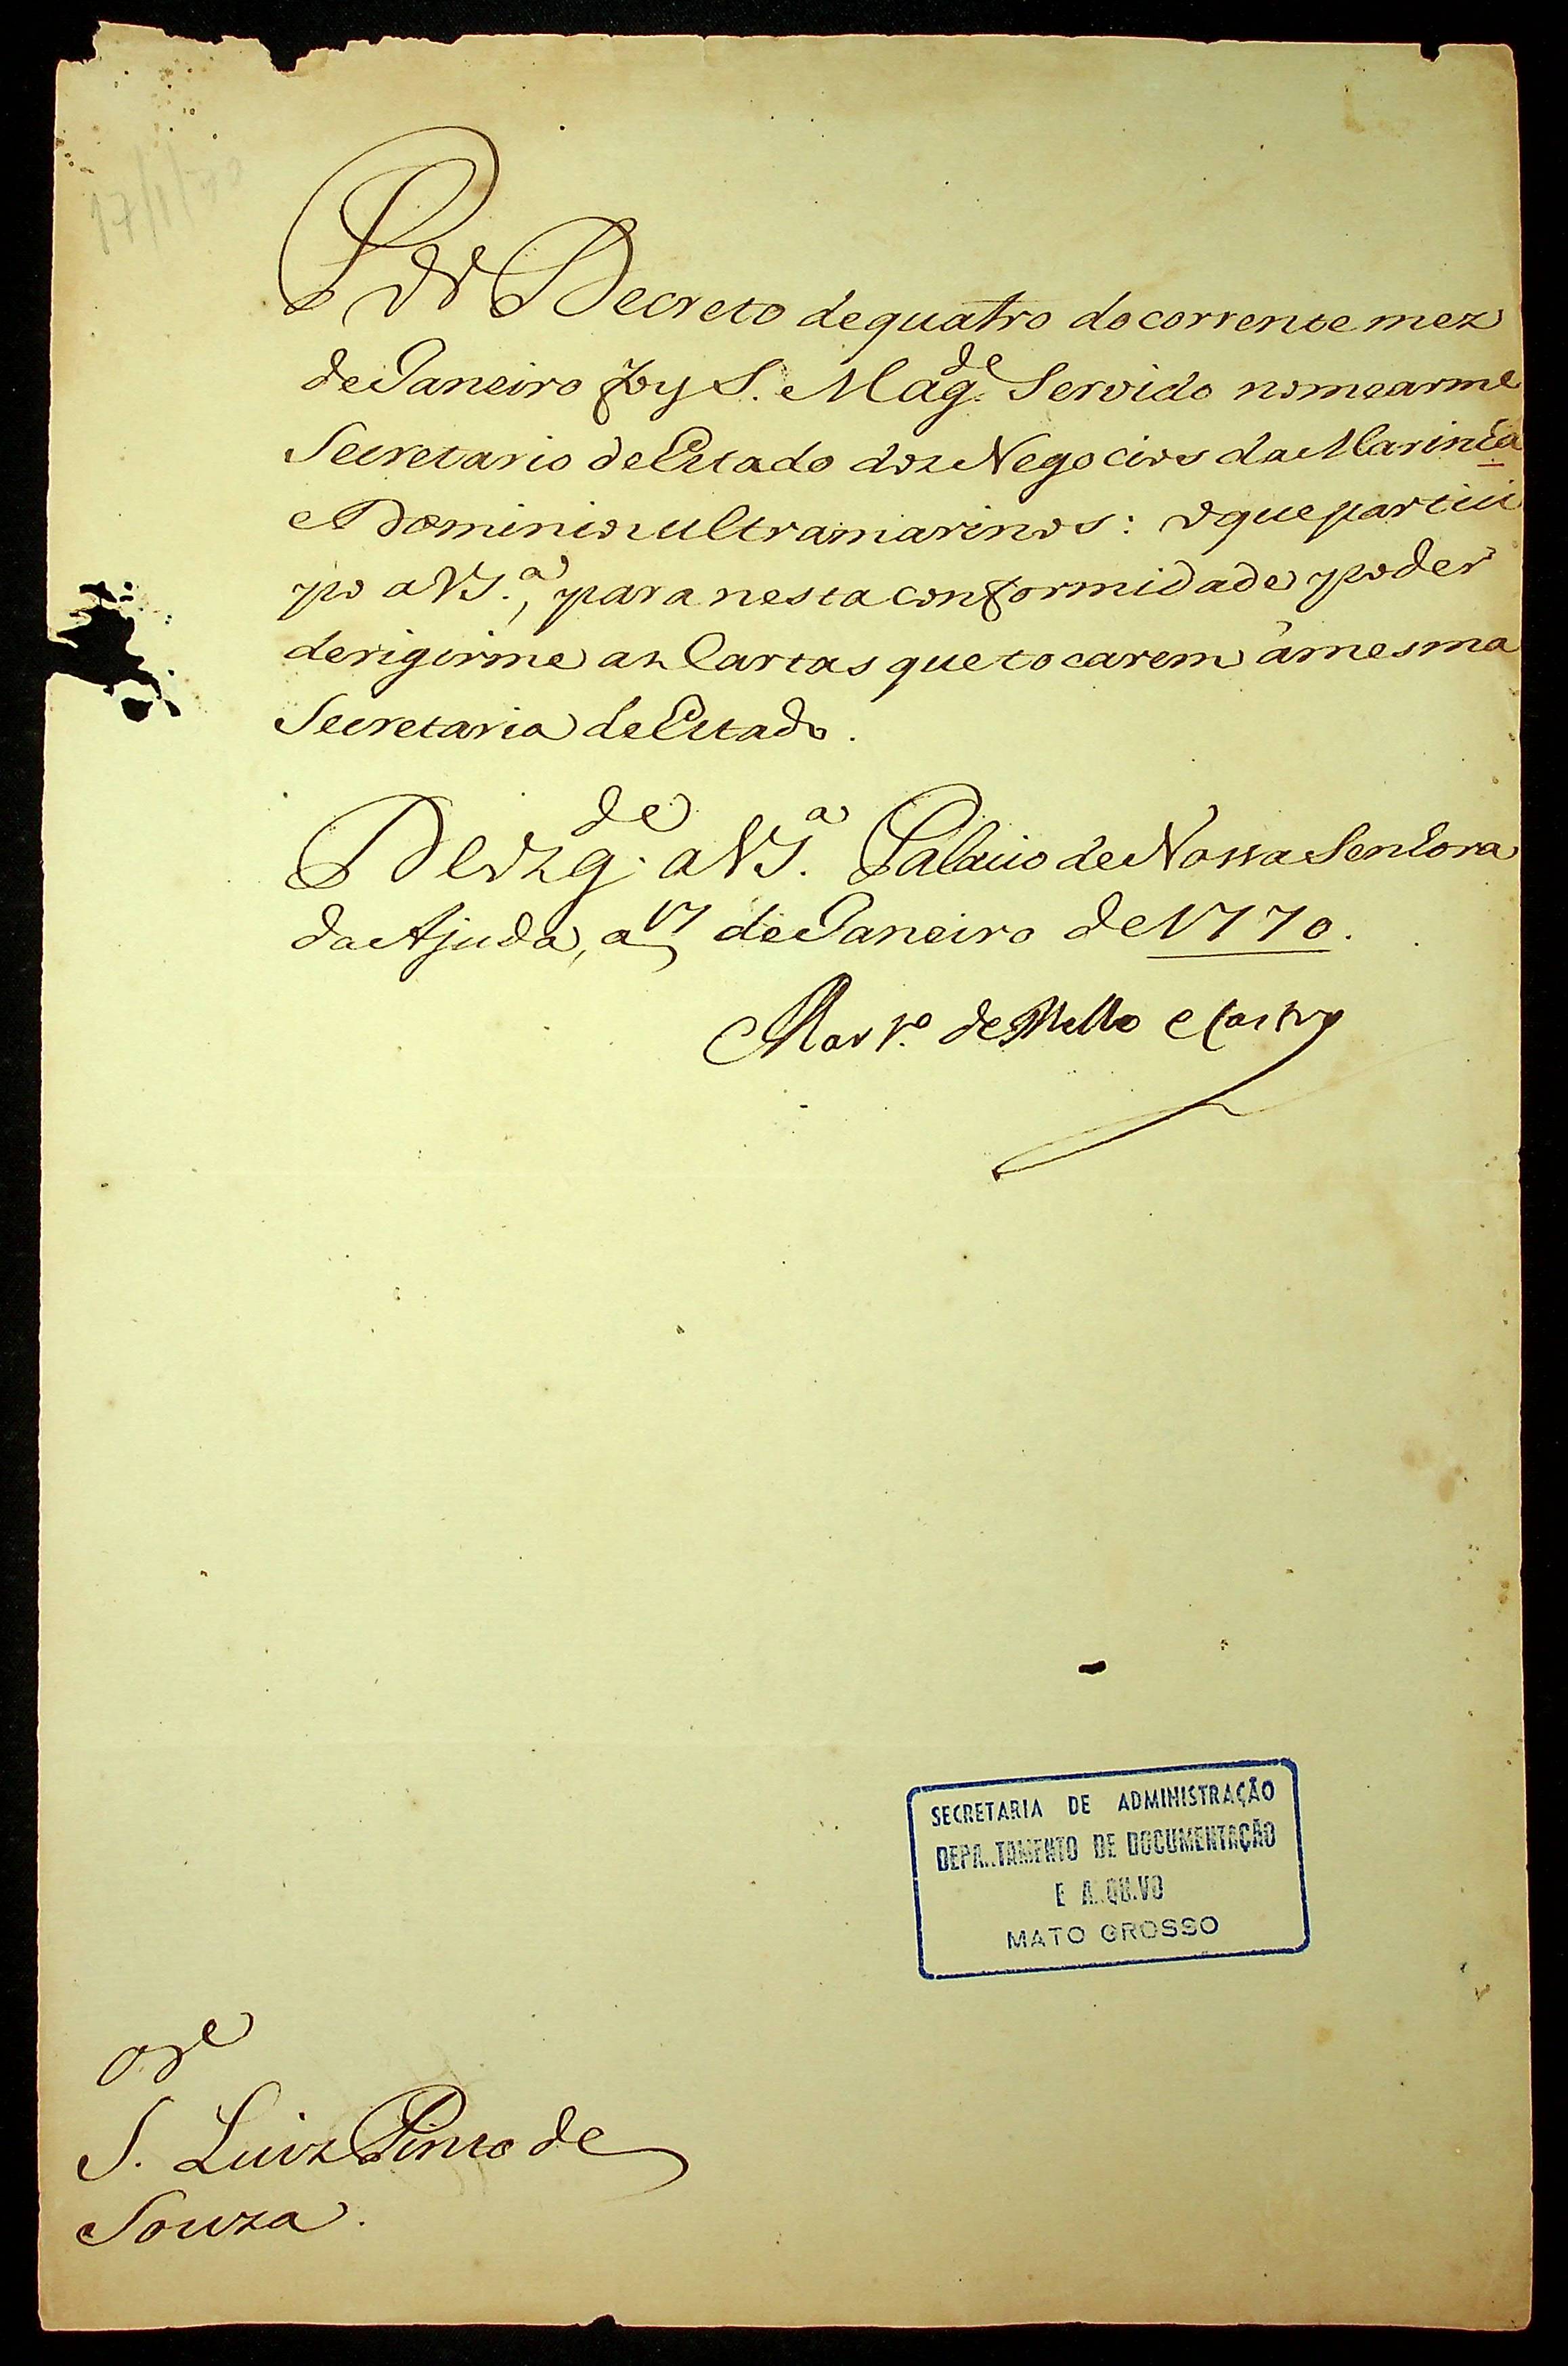 17/1/70
Por Decreto de quatro do corrente mez
de Janeiro foy S. Mag.de Servido nomearme
Secretario de Estado dos Negocios da Marinha
e Dominios Ultramarinos: o que partici
po a VS.a, para nesta conformidade poder
derigirme as Cartas que tocarem à mesma
Secretaria de Estado.
Deos g.de a VS.a Palacio de Nossa Senhora
da Ajuda, a 17 de Janeiro de 1770.
Mart.o de Mello e Castro
SECRETARIA DE ADMINISTRAÇÃO
DEPA..TAMENTO DE DOCUMENTAÇÃO
E A..QU.VO
MATO GROSSO
S. Luiz Pinto de
Souza.